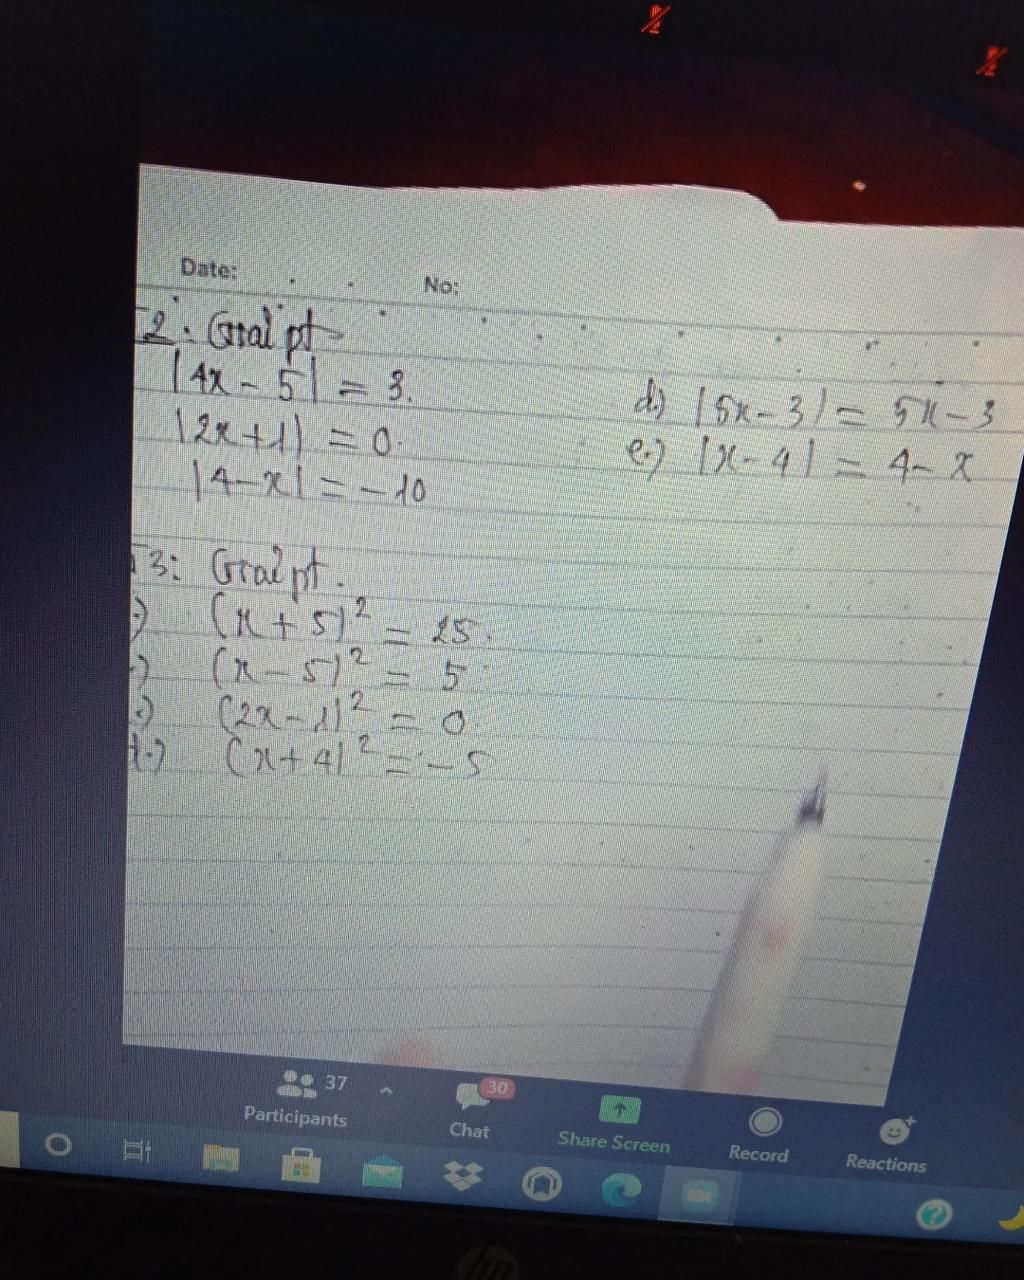 Date: No:
2: Giải pt
|4x - 5| = 3.
|2x + 1| = 0.
|4 - x| = -10
d.) |5x - 3| = 5x - 3
e.) |x - 4| = 4 - x
3: Giải pt.
(x + 5)² = 25.
(x - 5)² = 5
(2x - 1)² = 0.
(x + 4)² = -5
37
Participants
30
Chat
Share Screen
Record
Reactions
hp